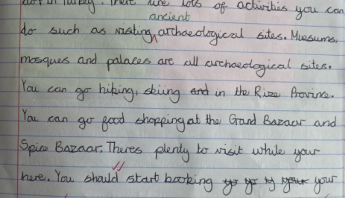 in Turkey. There are lots of activities you can
ancient
do such as visiting archaeological sites. Museums,
mosques and palaces are all archaeological sites.
You can go hiking, skiing and in the Rize Province.
You can go food shopping at the Grand Bazaar and
Spice Bazaar. Theres plenty to visit while your
here. You should start booking your